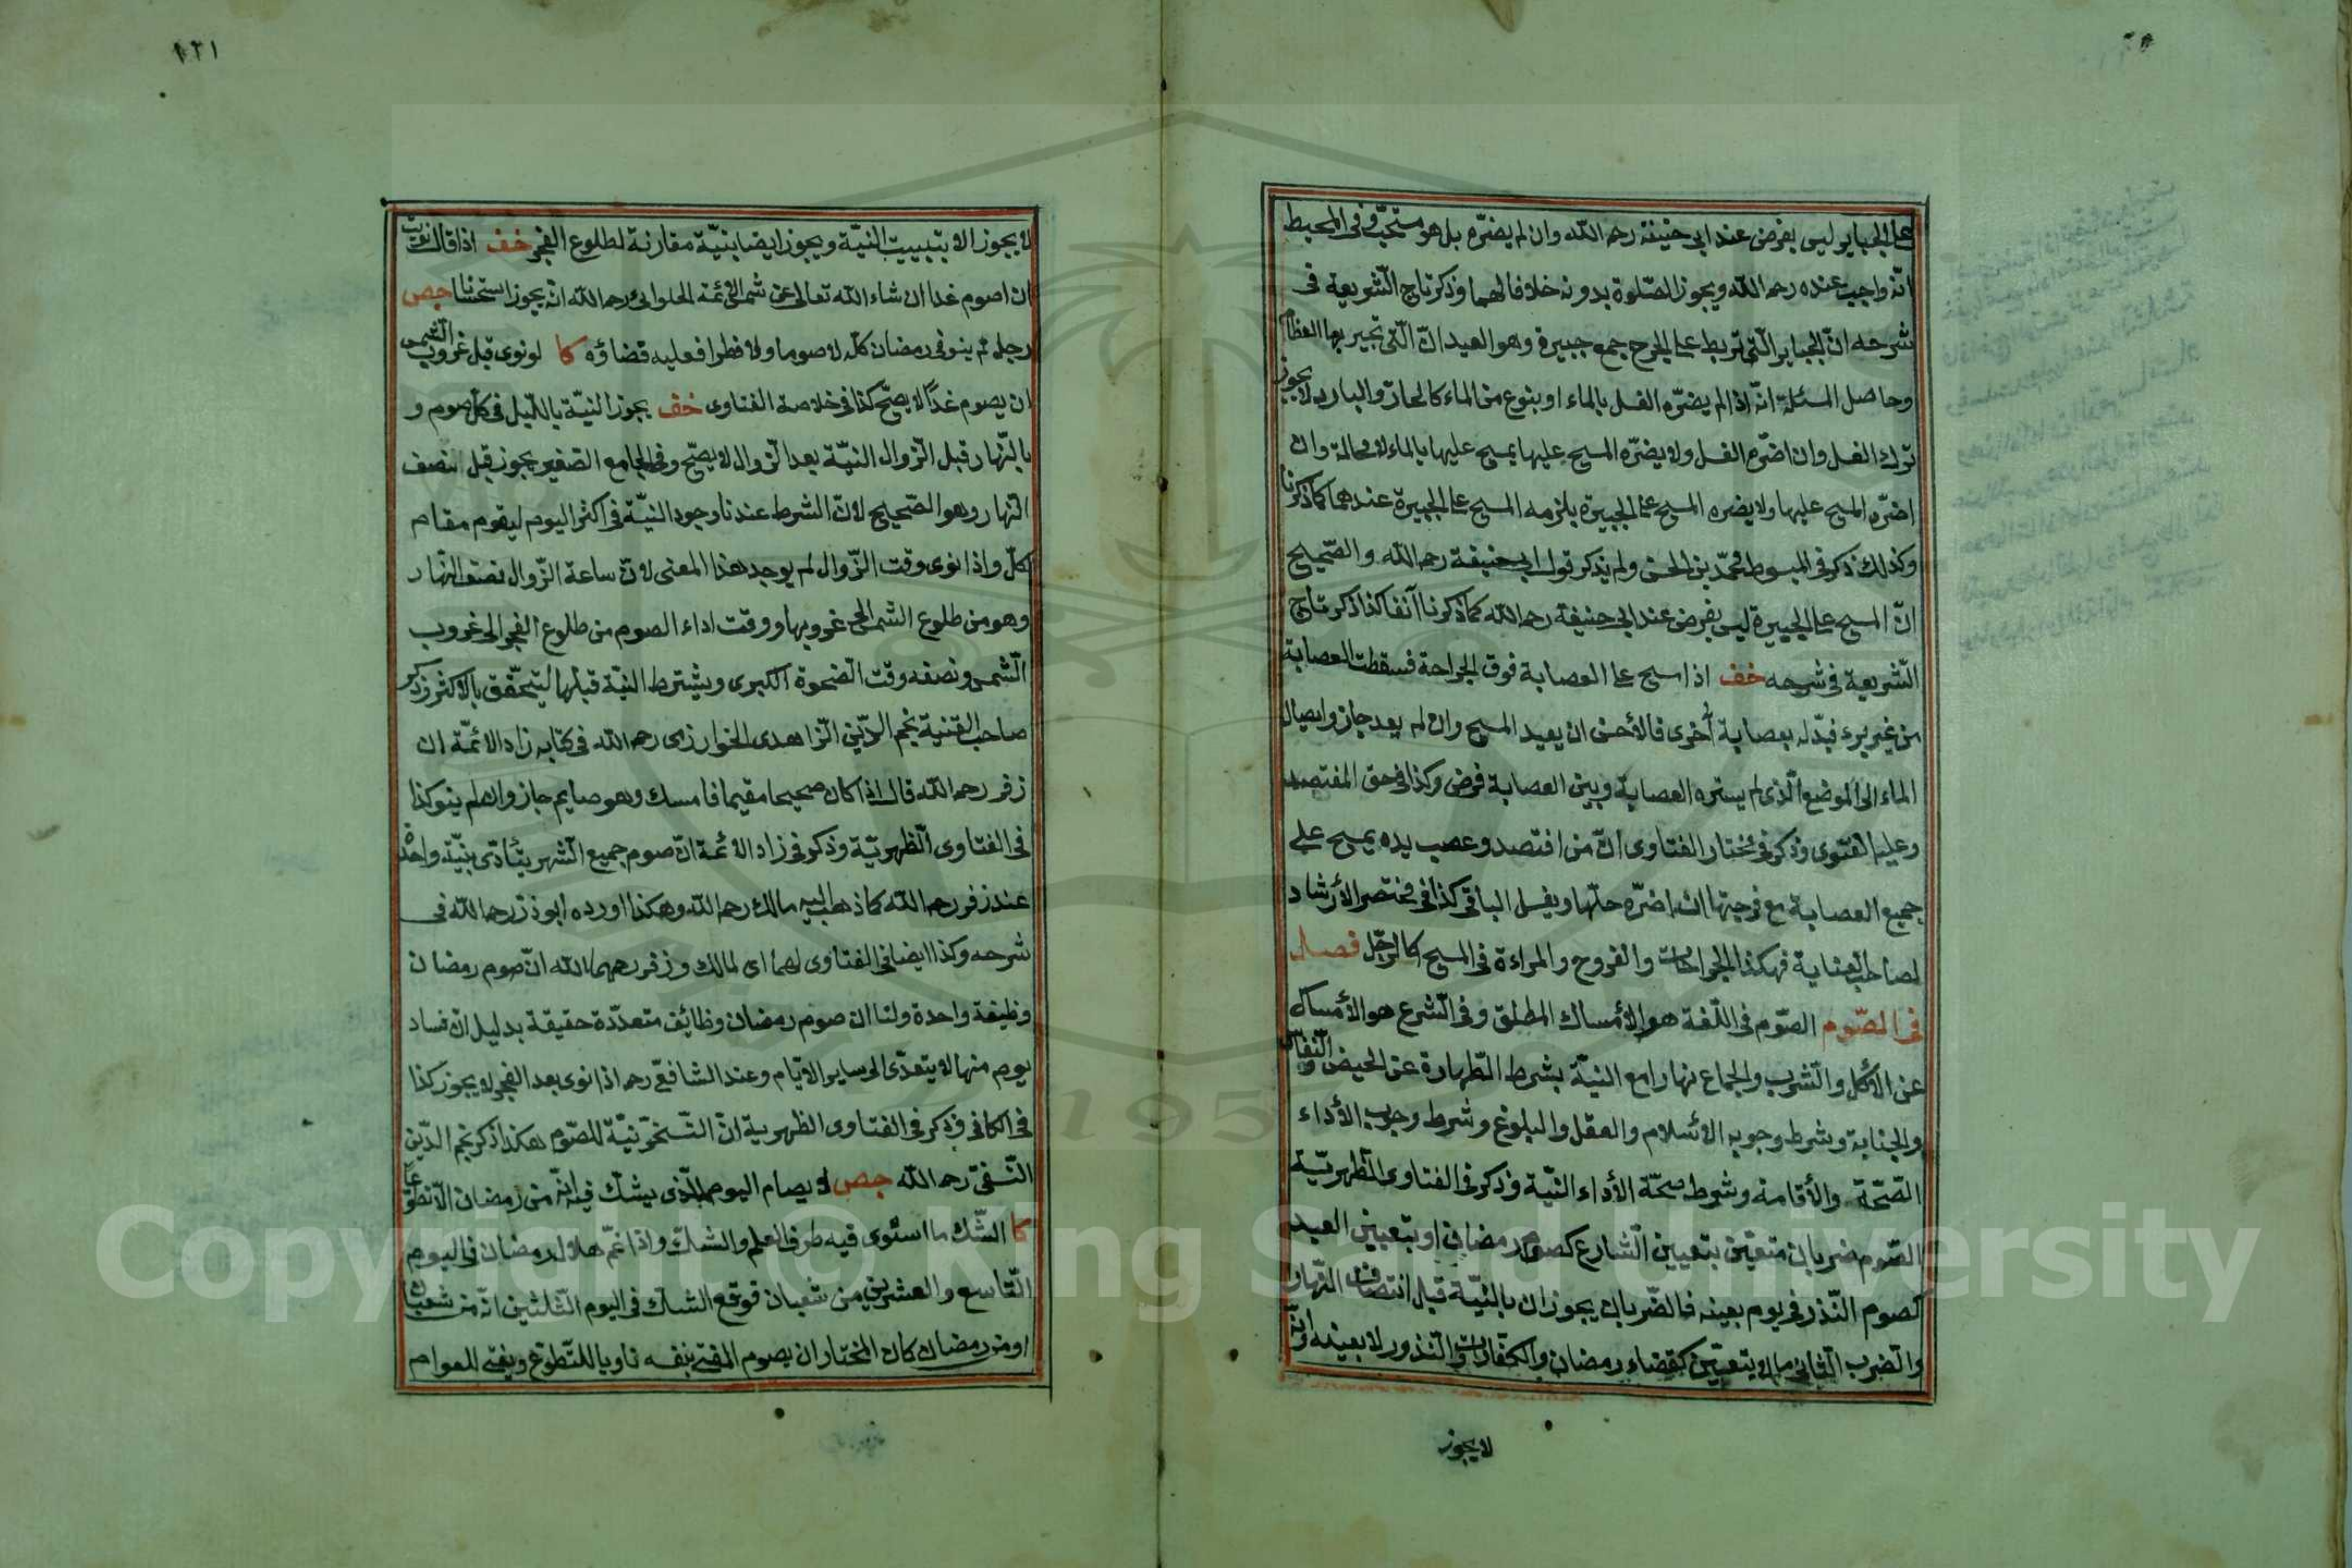 على الجباير ليس بفرض عند ابى حنيفة رحمه اللّه وان لم يضرّه بل هو مستحبّ وفى المحيط
انّه واجب عنده رحمه اللّه ويجوز الصّلوة بدونه خلافا لهما وذكر تاج الشّريعة فى
شرحه انّ الجباير الّتى تربط على الجرح جمع جبيرة وهو العيدانّ الّتى تجبر بها العظام
وحاصل المسئلة انّه اذا لم يضرّه الغسل بالماء او بنوع من الماء كالحارّ والبارد لا يجوز
ترك الغسل وان اضرّه الغسل ولا يضرّه المسح عليها يمسح عليها بالماء لا محالة وان
اضرّه المسح عليها ولا يضره المسح على الجبيرة يلزمه المسح على الجبيرة عندهما كما ذكرنا
وكذلك ذكر فى المبسوط محمّد بن الحسن ولم يذكر قول ابى حنيفة رحمه اللّه والصّحيح
انّ المسح على الجبيرة ليس بفرض عند ابى حنيفة رحمه اللّه كما ذكرنا آنفا كذا ذكر تاج
الشّريعة فى شرحه خف اذا مسح على العصابة فوق الجراحة فسقطت العصابة
من غير برء فبدّله بعصابة أخرى فالأحسن ان يعيد المسح وان لم يعد جاز وايصال
الماء الى الموضع الّذى لم يستره العصابة وبين العصابة فرض وكذا فى حق المفتصد
وعليه الفتوى وذكر فى مختار الفتاوى انّ من افتصد وعصب يده يمسح على
جميع العصابة مع فرجتها ان اضرّه حلّها ويغسل الباقى كذا فى مختصر الأرشاد
لصاحب العناية فهكذا الجراحات والقروح والمراءة فى المسح كالرّجل فصل
فى الصّوم الصّوم فى اللّغة هو الأمساك المطلق وفى الشّرع هو الأمساك
عن الأكل والشّرب والجماع نهارا مع النيّة بشرط الطّهارة عن الحيض والنّفاس
والجنابة وشرط وجوبه الأسلام والعقل والبلوغ وشرط وجوب الأداء
الصّحّة والأقامة وشرط صحّة الأداء النّية وذكر فى الفتاوى الظّهريّة
الصّوم ضربان متعيّن بتعيين الشّارع كصوم رمضان او بتعيين العبد
كصوم النّذر فى يوم بعينه فالضّربان يجوزان بالنيّة قبل انتصاف النّهار
والضرب الثّانى ما لا يتعيّن كقضاء رمضان والكفّارات والنذور لا بعينه وانّه
لا يجوز
١٢١
لا يجوز الا بتبييت النيّة ويجوز ايضا بنيّة مقارنة لطلوع الفجر خف اذا قال نويت
ان اصوم غدا ان شاء اللّه تعالى عن شمس الأئمة الحلوانى رحمه اللّه انّه يجوز استحسانا جص
رجل لم ينو فى رمضان كلّه لا صوما ولا فطرا فعليه قضاؤه كا لو نوى قبل غروب الشّمس
ان يصوم غدًا لا يصحّ كذا فى خلاصة الفتاوى خف يجوز النيّة بالليل فى كلّ صوم و
بالنّهار قبل الزّوال النيّة بعد الزّوال لا يصحّ وفى الجامع الصّغير يجوز قبل نصف
النّهار وهو الصّحيح لانّ الشرط عندنا وجود النيّة فى اكثر اليوم ليقوم مقام
كلّ واذا نوى وقت الزّوال لم يوجد هذا المعنى لانّ ساعة الزّوال نصف النّهار
وهو من طلوع الشمس الى غروبها ووقت اداء الصوم من طلوع الفجر الى غروب
الشّمس ونصفه وقت الضحوة الكبرى ويشترط النيّة قبلها ليتحقّق بالاكثر وذكر
صاحب القنية نجم الدّين الزّاهدى الخوارزمى رحمه اللّه فى كتابه زاد الائمّة ان
زفر رحمه اللّه قال اذا كان صحيحا مقيما فامسك وهو صايم جاز وان لم ينو كذا
فى الفتاوى الظّهريّة وذكر فى زاد الائمة انّ صوم جميع الشّهر يتأدّى بنيّة واحدة
عند زفر رحمه اللّه كما ذهب اليه مالك رحمه اللّه وهكذا اورده ابو ذر رحمه اللّه فى
شرحه وكذا ايضا فى الفتاوى لهما اى لمالك وزفر رحمهما اللّه انّ صوم رمضان
وظيفة واحدة ولنا ان صوم رمضان وظائف متعدّدة حقيقة بدليل انّ فساد
يوم منها لا يتعدّى الى ساير الايّام وعند الشافعى رحمه اذا نوى بعد الفجر لا يجوز كذا
فى الكافى وذكر فى الفتاوى الظهرية انّ التّسحّر نيّة للصّوم هكذا ذكر نجم الدّين
النّسفى رحمه اللّه جص لا يصام اليوم الّذى يشكّ فيه انّه من رمضان الّا تطوّعا
كا الشّك ما استوى فيه طرفا العلم والشكّ واذا غمّ هلال رمضان فى اليوم
التّاسع والعشرين من شعبان فوقع الشك فى اليوم الثّلثين انّه من شعبان
او من رمضان كان المختار ان يصوم المفتى بنفسه ناويا للتّطوّع ويفتى للعوام